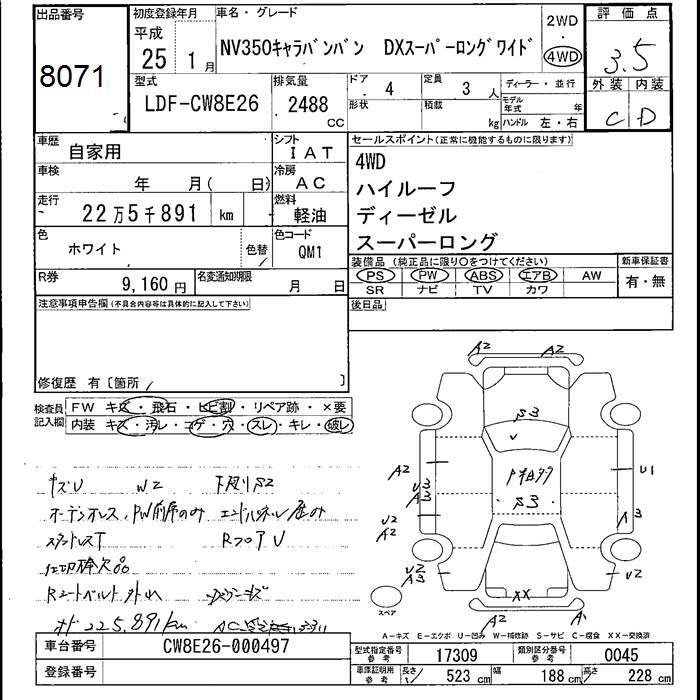 出品番号
8071
初度登録年月
平成
25 1月
車名・グレード
NV350キャラバンバン DXスーパーロングワイド
2WD
4WD
評価点
3.5
外装 内装
C D
型式
LDF-CW8E26
排気量
2488
CC
ドア
4
形状
定員
3 人
積載
kg
ディーラー・並行
モデル年式 年
ハンドル 左・右
車歴
自家用
シフト
IAT
車検
年 月( 日)
冷房
AC
走行
22万5千891 km
燃料
軽油
色
ホワイト
色替
色コード
QM1
R券
9,160円
名変通知期限
月 日
セールスポイント(正常に機能するものに限ります)
4WD
ハイルーフ
ディーゼル
スーパーロング
装備品 (純正品に限り○をつけてください)
PS PW ABS エアB AW
SR ナビ TV カワ
新車保証書
有・無
後日品
注意事項申告欄(不具合内容等は具体的に記入して下さい)
修復歴 有〔箇所 〕
検査員記入欄
FW キズ・飛石・ヒビ割・リペア跡・×要
内装 キズ・汚レ・コゲ・穴・スレ・キレ・破レ
キズU W2
下廻りS2
Rフロア U
仕切棒欠品
Rシートベルト外れ
225,891km
A2 A2
A2
U2
U2
A2
U2
A3
U1
A3
U2
XX
A2
スペア
A-キズ E-エクボ U-凹み W-補修跡 S-サビ C-腐食 XX-交換済
車台番号
CW8E26-000497
登録番号
型式指定番号
参考
17309
類別区分番号
参考
0045
車庫証明用
参考
長さ 523 cm
幅 188 cm
高さ 228 cm